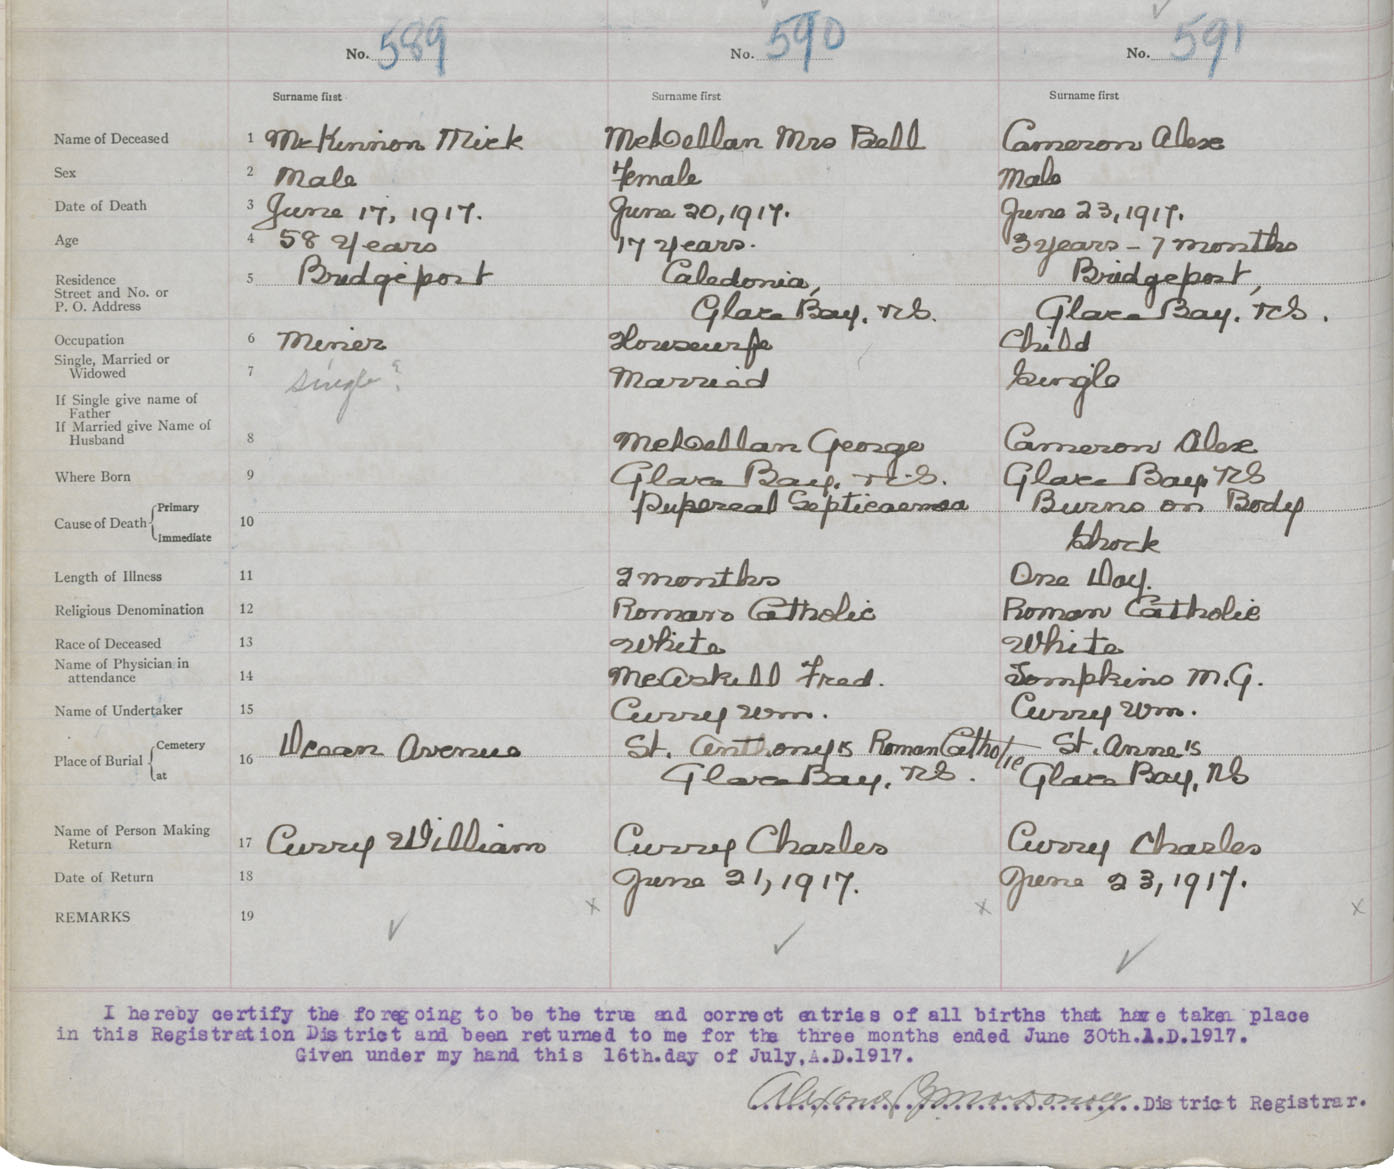 No. 589
No. 590
No. 591
Surname first
Surname first
Surname first
Name of Deceased 1 McKinnon Mick McLellan Mrs Bell Cameron Alex
Sex 2 Male Female Male
Date of Death 3 June 17, 1917. June 20, 1917. June 23, 1917.
Age 4 58 years 17 years. 3 years - 7 months
Residence
Street and No. or
P. O. Address
5 Bridgeport Caledonia, Bridgeport,
Glace Bay, N.S. Glace Bay, N.S.
Occupation 6 Miner Housewife Child
Single, Married or
Widowed
7 Single ? Married Single
If Single give name of
Father
If Married give Name of
Husband
8 McLellan George Cameron Alex
Where Born 9 Glace Bay, N.S. Glace Bay, NS
Cause of Death Primary
Immediate
10 Pupereal Septicaemea Burns on Body
Shock
Length of Illness 11 2 months One Day.
Religious Denomination 12 Roman Catholic Roman Catholic
Race of Deceased 13 White White
Name of Physician in
attendance
14 McAskill Fred. Tompkins M.G.
Name of Undertaker 15 Curry Wm. Curry Wm.
Place of Burial Cemetery
at
16 Dean Avenue St. Anthony's Roman Catholic St. Anne's
Glace Bay, N.S. Glace Bay, NS
Name of Person Making
Return
17 Curry William Curry Charles Curry Charles
Date of Return 18 June 21, 1917. June 23, 1917.
REMARKS 19
I hereby certify the foregoing to be the true and correct entries of all births that have taken place
in this Registration District and been returned to me for the three months ended June 30th.A.D.1917.
Given under my hand this 16th.day of July,A.D.1917.
District Registrar.